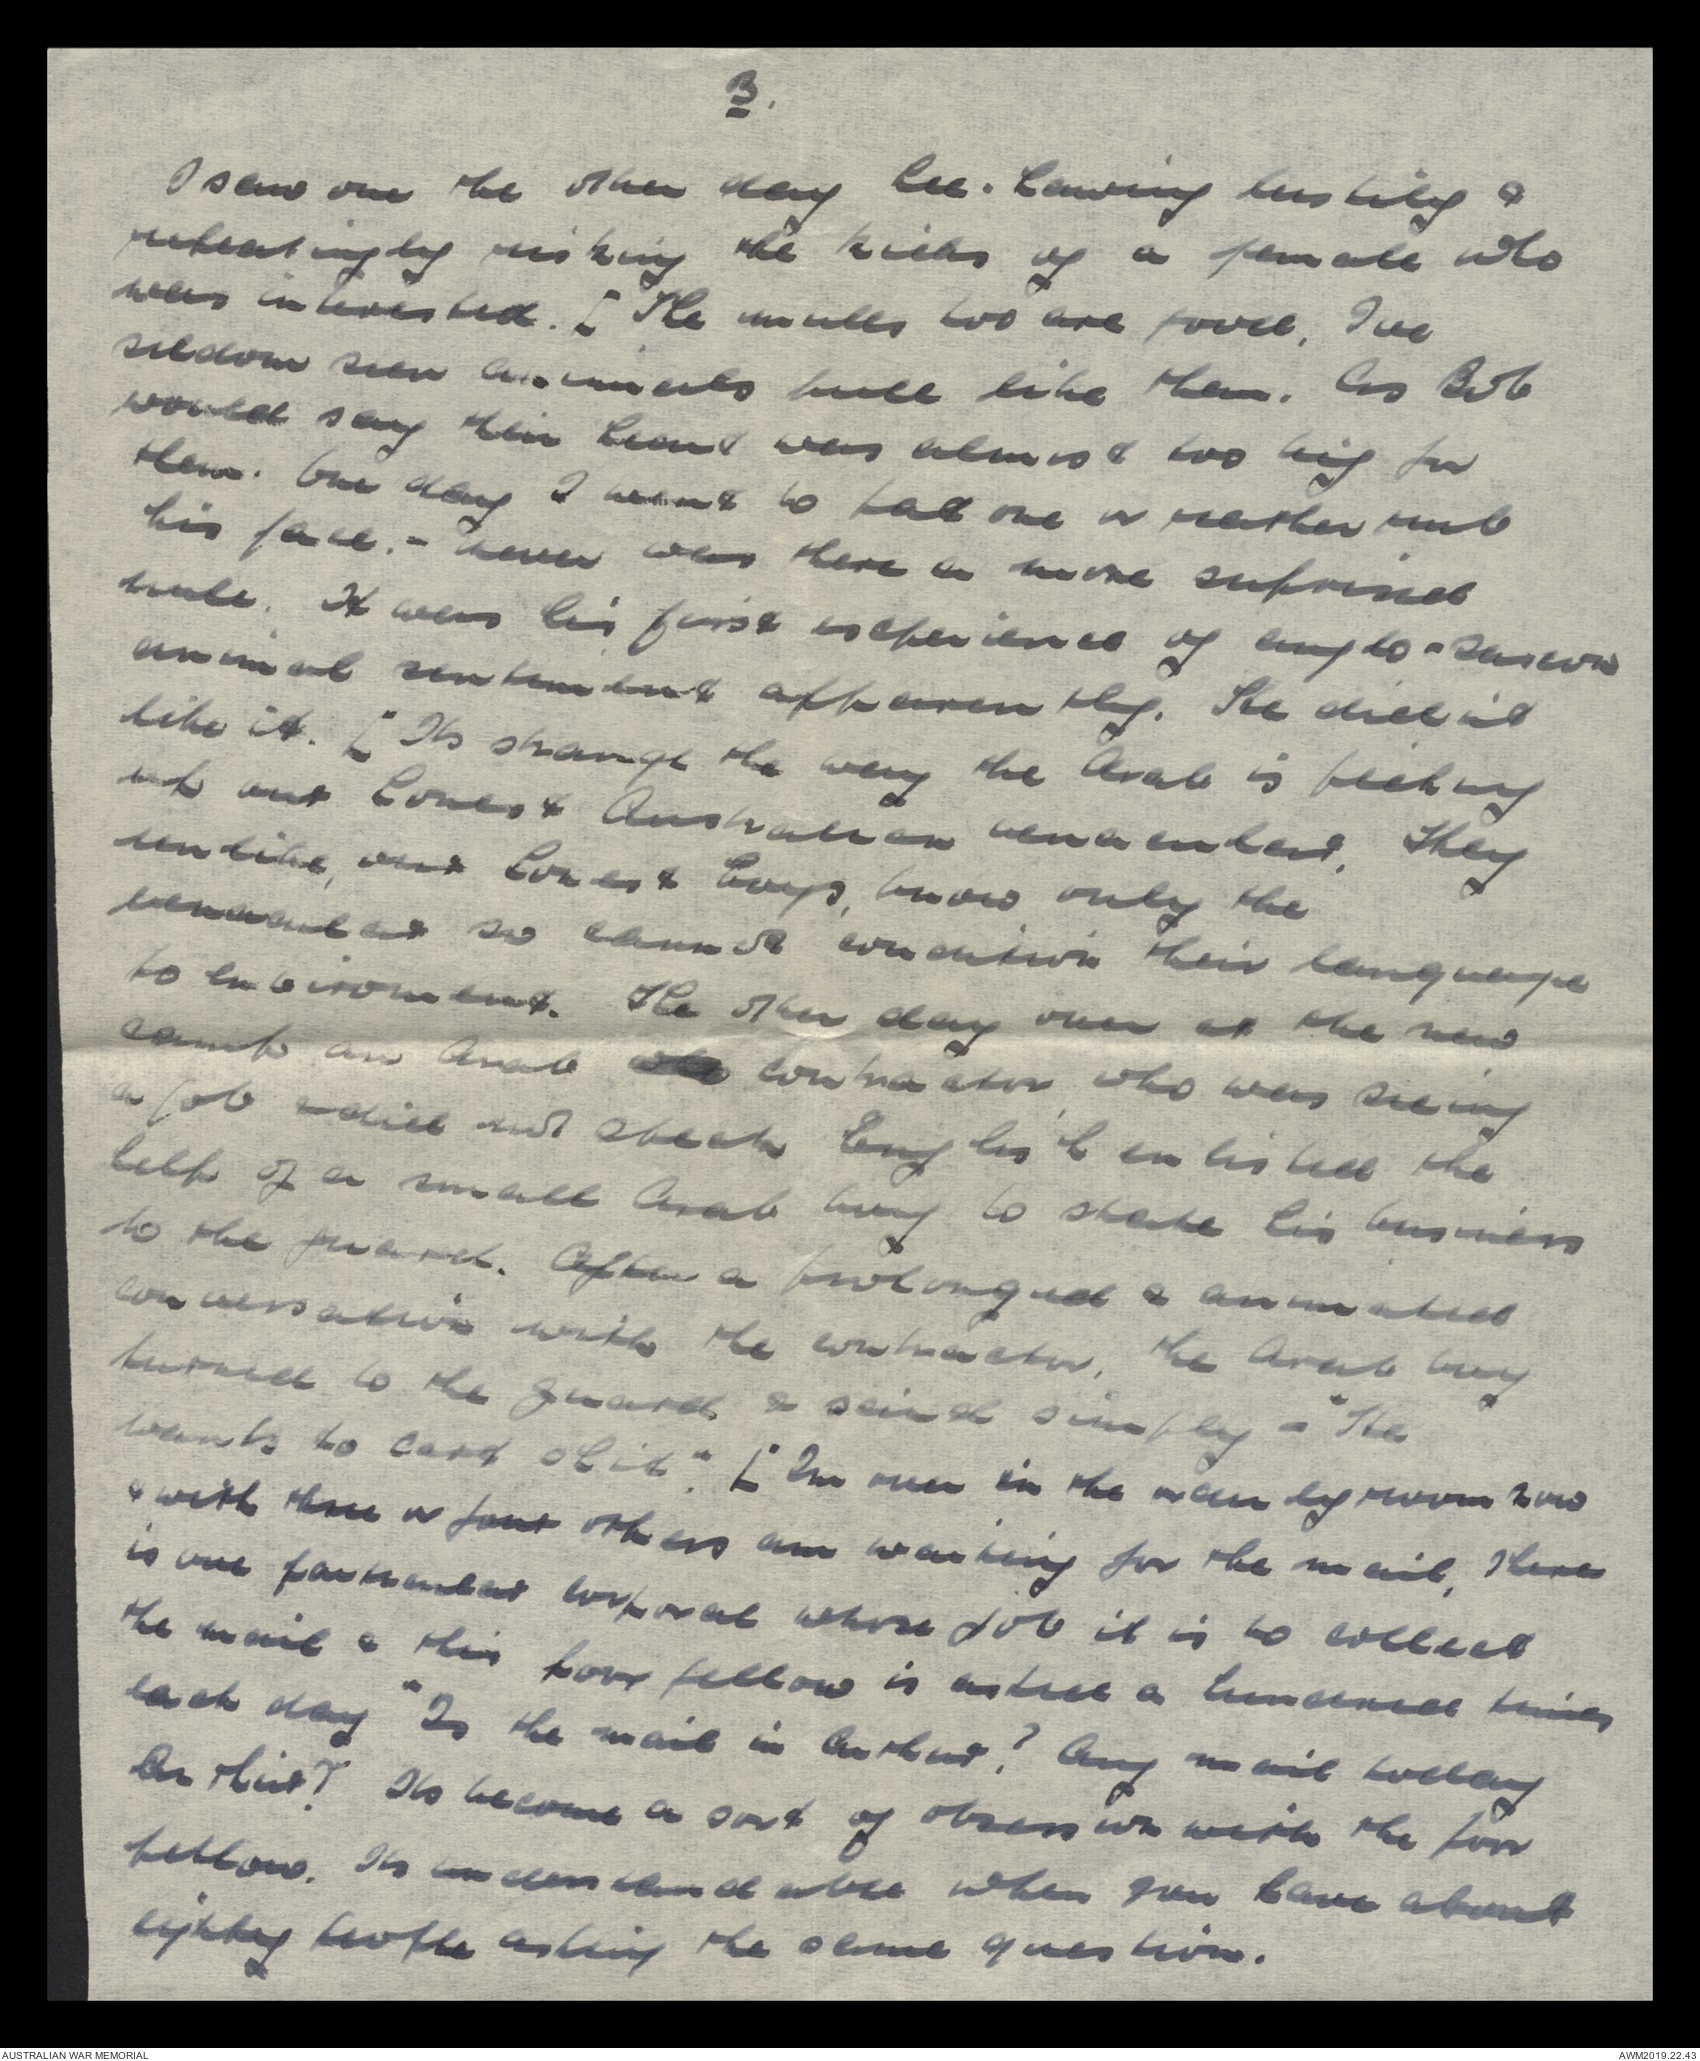 B.
I saw one the other day hee-hawing lustily &
repeatingly risking the kicks of a female who
was interested. [ The mules too are good, I've
seldom seen animals pull like them. As Bob
would say their heart was almost too big for
them. One day I went to pat one or rather rub
his face. - never was there a more suprised
mule. It was his first experience of anglo-saxon
animal sentiment apparently. He didnt
like it. [ Its strange the way the Arab is picking
up our honest Australian venacular. They
unlike, our honest boys, know only the
venacular so cannot condition their language
to enviroment. The other day over at the new
camp an Arab contractor, who was seeing
a job & did not speak English enlisted the
help of a small Arab boy to state his business
to the guard. After a prolonged & animated
conversation with the contractor, the Arab boy
turned to the guard & said simply - "He
wants to cart shit". [ Im over in the orderly room now
& with three or four others am waiting for the mail, there
is one particular corporal whose job it is to collect
the mail & this poor fellow is asked a hundred times
each day "Is the mail in Arthur? Any mail today
Arthur? Its become a sort of obsession with the poor
fellow. Its understandable when you have about
eighty people asking the same question.
AUSTRALIAN WAR MEMORIAL
AWM2019.22.43